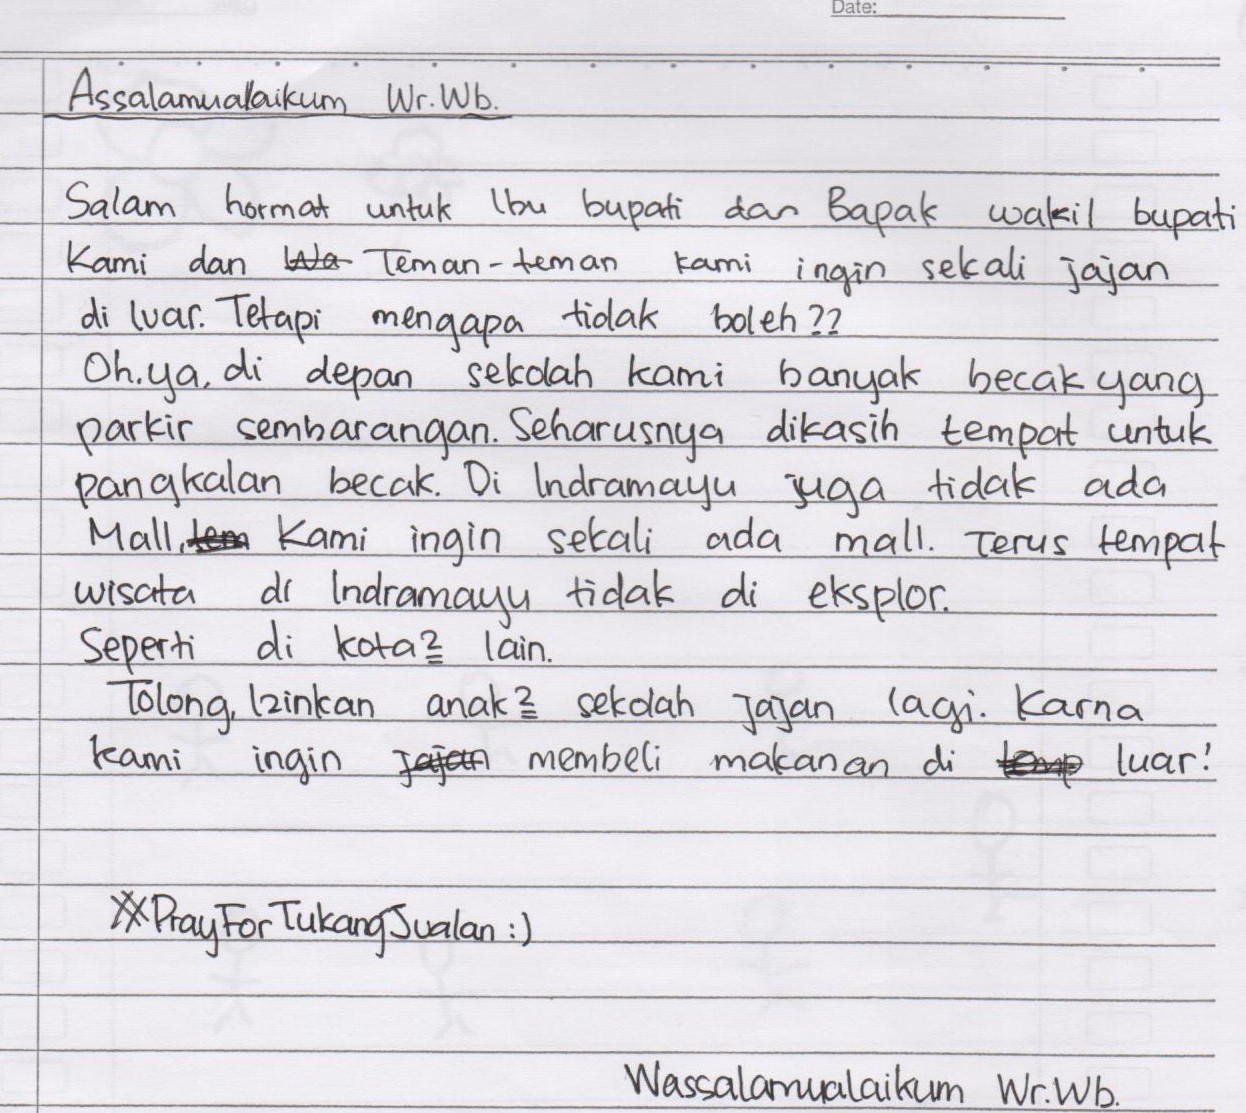 Date:
Assalamualaikum Wr.Wb.
Salam hormat untuk Ibu bupati dan Bapak wakil bupati
Kami dan Wa Teman-teman kami ingin sekali jajan
di luar. Tetapi mengapa tidak boleh??
Oh.ya, di depan sekolah kami banyak becak yang
parkir sembarangan. Seharusnya dikasih tempat untuk
pangkalan becak. Di Indramayu juga tidak ada
Mall, tem Kami ingin sekali ada mall. Terus tempat
wisata di Indramayu tidak di eksplor.
Seperti di kota2 lain.
Tolong, Izinkan anak2 sekolah jajan lagi. Karna
kami ingin jajan membeli makanan di temp luar!
#PrayForTukangJualan :)
Wassalamualaikum Wr.Wb.